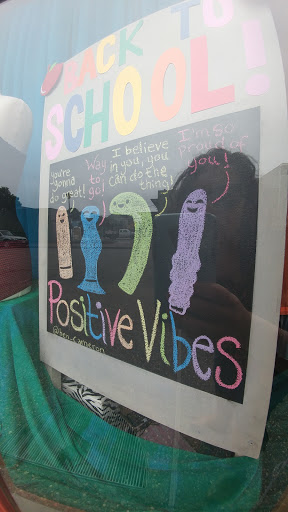 BACK TO
SCHOOL!
You're
gonna
do great!
Way
to
go!
I believe
in you, you
can do the
thing!
I'm so
proud of
you!
Positive Vibes